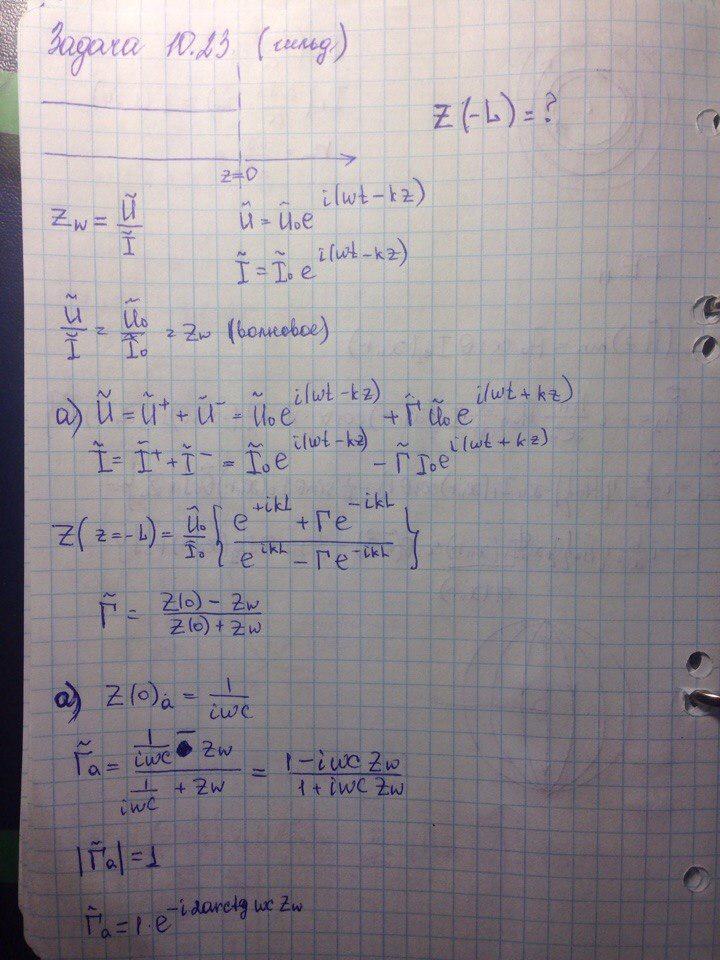 Задача 10.23 (гильд)
Z(-L) = ?
z=0
Z_w = Ũ/Ĩ
Ũ = Ũ₀e^{i(wt-kz)}
Ĩ = Ĩ₀e^{i(wt-kz)}
Ũ/Ĩ = Ũ₀/Ĩ₀ = Z_w (волновое)
а) Ũ = Ũ⁺ + Ũ⁻ = Ũ₀e^{i(wt-kz)} + Γ̃ Ũ₀e^{i(wt+kz)}
Ĩ = Ĩ⁺ + Ĩ⁻ = Ĩ₀e^{i(wt-kz)} - Γ̃ I₀e^{i(wt+kz)}
Z(z=-L) = Ũ₀/Ĩ₀ {(e^{+ikL} + Γe^{-ikL})/(e^{ikL} - Γe^{-ikL})}
Γ̃ = (Z(0) - Z_w)/(Z(0) + Z_w)
а) Z(0)_а = 1/(iwc)
Γ̃_а = (1/(iwc) - Z_w)/(1/(iwc) + Z_w) = (1 - iwc Z_w)/(1 + iwc Z_w)
|Γ̃_а| = 1
Γ̃_а = 1·e^{-i2arctg wc Z_w}